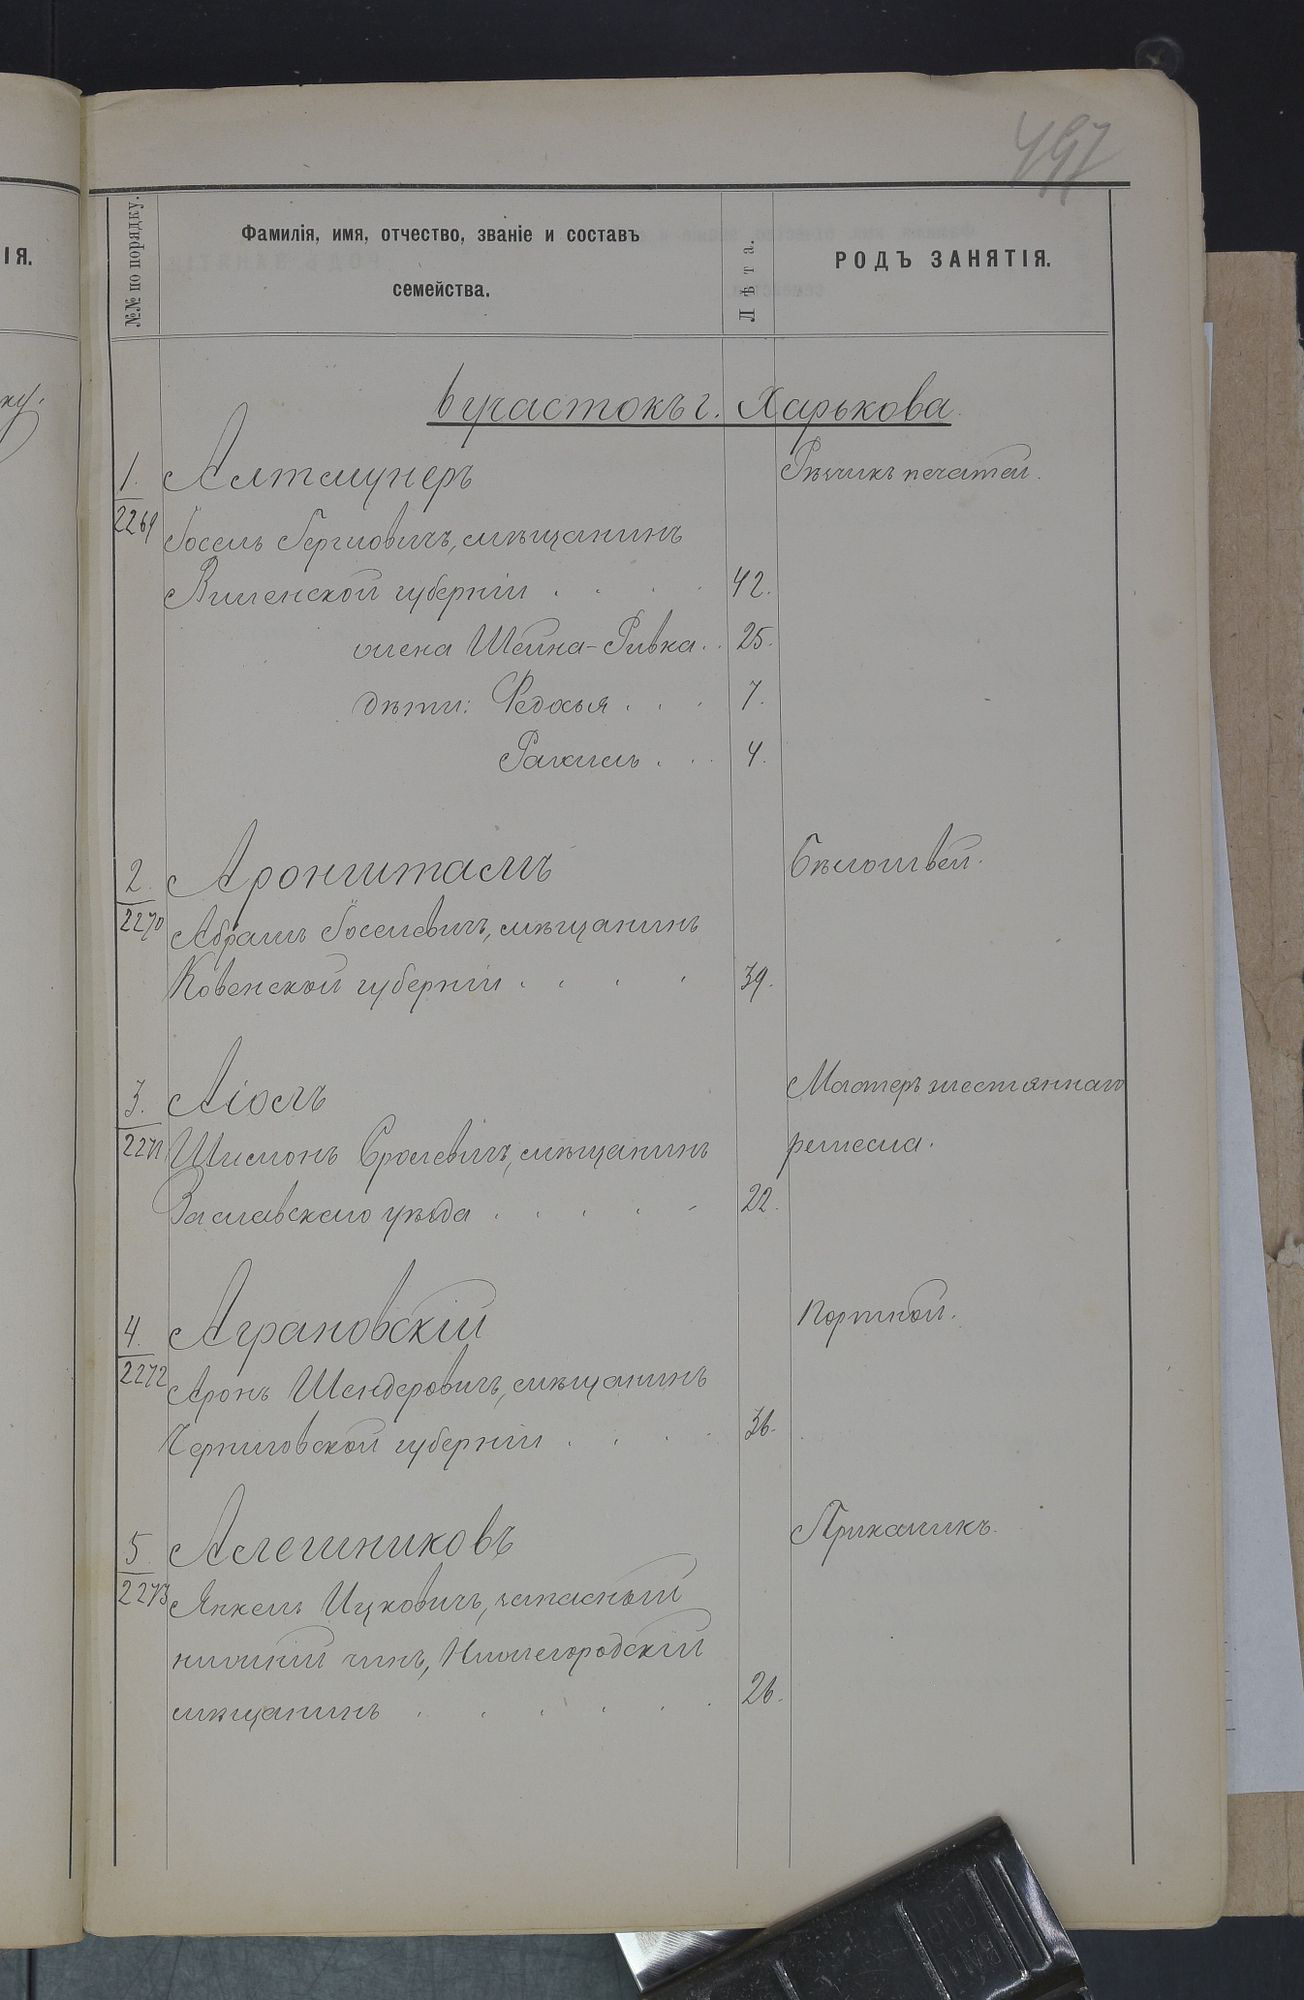 497
ІЯ.
ку.
№№ по порядку.
Фамилія, имя, отчество, званіе и составъ
семейства.
Лѣта.
РОДЪ ЗАНЯТІЯ.
6 участокъ г. Харькова
1. Алтмунеръ Рѣзчикъ печатей.
2269 Іосель Гершовичъ, мѣщанинъ
Виленской губерніи . . . . 42.
жена Шейна-Ривка . . 25.
дѣти: Федосья . . . 7.
Рахиль . . . 4.
2. Аронштамъ Бѣлошвей.
2270 Абрамъ Іоселевичъ, мѣщанинъ
Ковенской губерніи . . . . 39.
3. Аіолъ Мастеръ жестяннаго
2271 Шимонъ Сролевичъ, мѣщанинъ ремесла.
Заславскаго уѣзда . . . . . 22.
4. Аграновскій Портной.
2272 Аронъ Шендеровичъ, мѣщанинъ
Черниговской губерніи . . . . 36.
5. Алешниковъ Прикащикъ.
2273 Янкель Ицковичъ, запасный
нижній чинъ, Нижегородскій
мѣщанинъ . . . . . . 26.